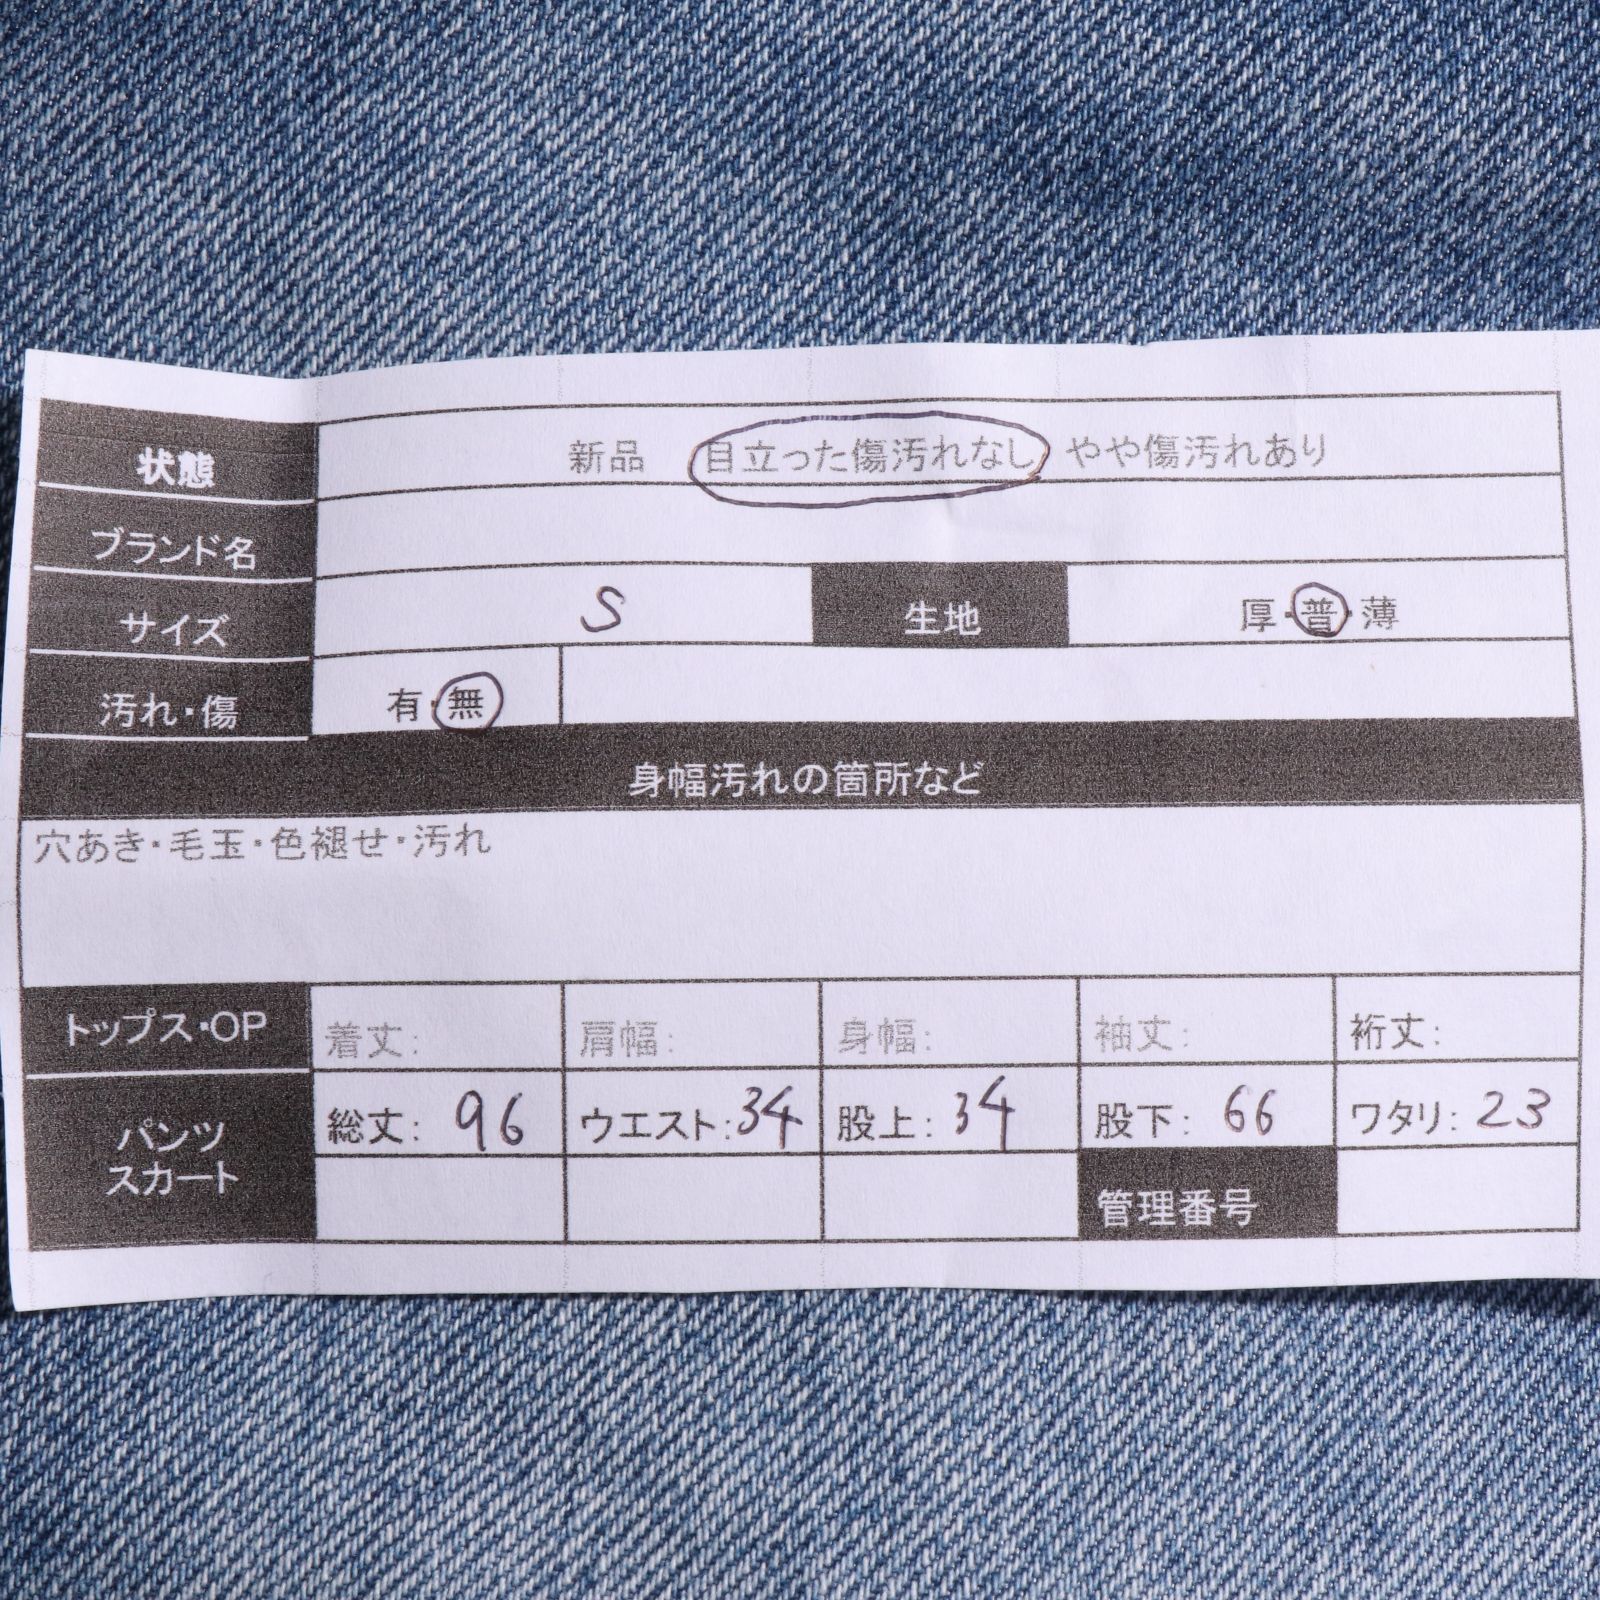 状態 新品 目立った傷汚れなし やや傷汚れあり
ブランド名
サイズ S 生地 厚・普・薄
汚れ・傷 有・無
身幅汚れの箇所など
穴あき・毛玉・色褪せ・汚れ
トップス・OP 着丈: 肩幅: 身幅: 袖丈: 裄丈:
パンツ スカート 総丈: 96 ウエスト: 34 股上: 34 股下: 66 ワタリ: 23
管理番号